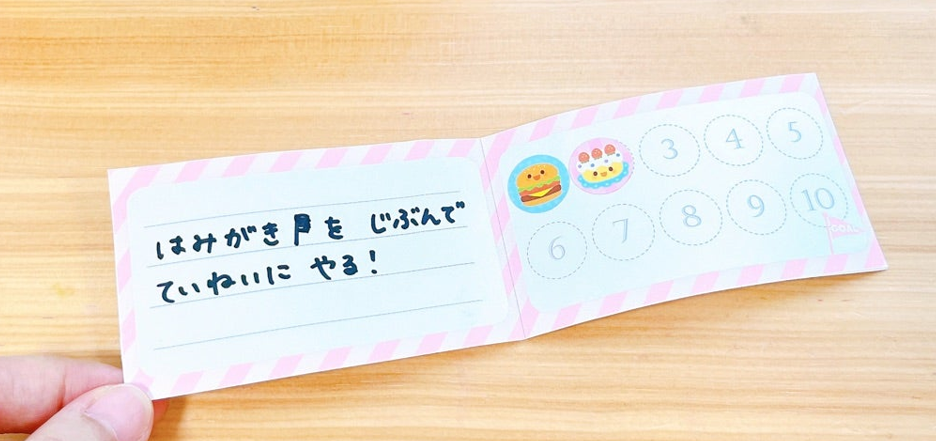 はみがき を じぶんで
ていねいに やる!
3 4 5
6 7 8 9 10
GOAL